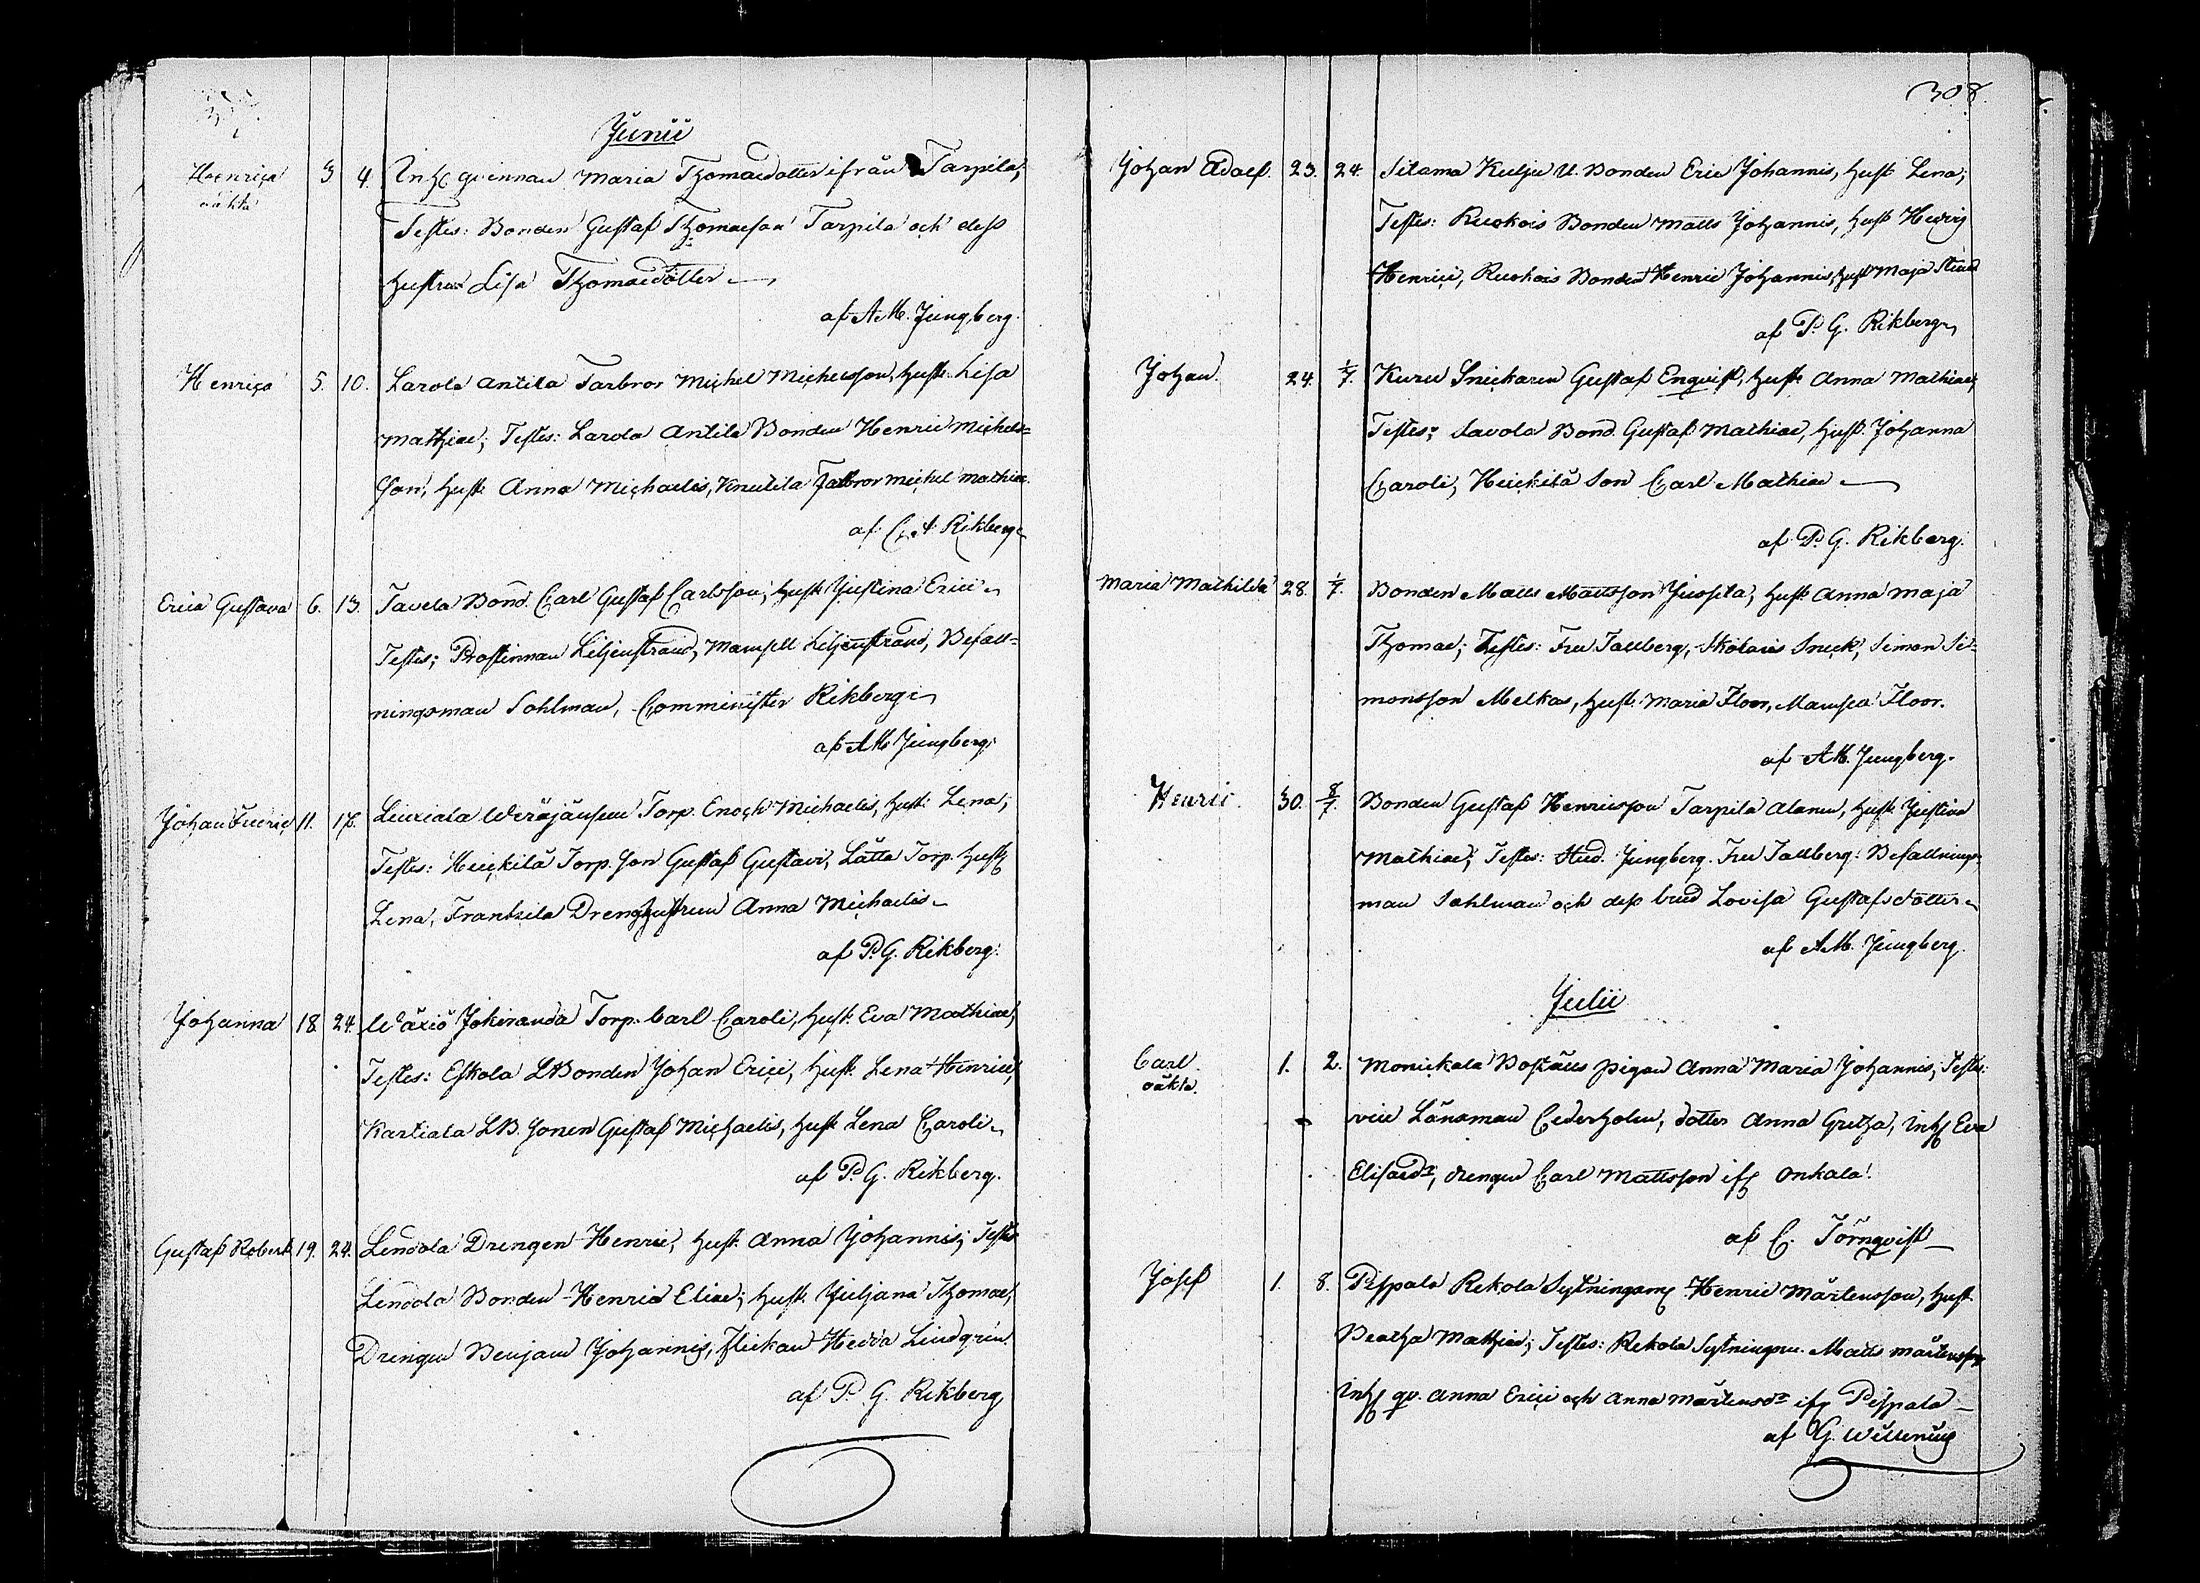 Junii
Henrica 3 4. Inh. qvinnan Maria Thomaedotter ifrån Tarpila;
oäkta
Testes: Bonden Gustaf Thomaeson Tarpila och dess
hustru Lisa Thomaedotter
af A.M. Jungberg.
Henrica 5. 10. Larola Antila Farbror Michel Michelsson, hust. Lisa
Mathiae; Testes: Larola Antila Bonden Henric Michels-
son, hust. Anna Michaelis, Knutila Farbror Michel Mathiae
af C. A. Rikberg
Erica Gustava 6. 13. Tavela Bond. Carl Gustaf Carlsson, hust. Justina Erici
Testes; Prostinnan Liljenstrand, Mamsell Liljenstrand, Befall-
ningsman Sohlman, Comminister Rikberg
af A.M. Jungberg.
Johan 11. 17. Torp. Enoch Michaelis, hust. Lena;
Testes: Heickilä Torp. Son Gustaf Gustavi, Lätta Torp. hust.
Lena, Frantsila Dreng hustrun Anna Michaelis
af P.G. Rikberg.
Johanna 18. 24. Wäxiö Jokiranda Torp. Carl Caroli, hust. Eva Mathiae;
Testes: Eskola LBonden Johan Erici, hust. Lena Henrici,
Kartiala LB. Sonen Gustaf Michaelis, hust. Lena Caroli
af P.G. Rikberg.
Gustaf Robert 19. 24. Lendola Drengen Henric, hust. Anna Johannis; Testes
Lendola Bonden Henric Eliae; hust. Juljana Thomae,
Drengen Benjam Johannis, flickan Hedda Lindgrén.
af P. G. Rikberg
308.
Johan Adolf. 23. 24 Sitama Kulju U. Bonden Eric Johannis, hust. Lena;
Testes: Ruokois Bonden Matts Johannis, hust. Hedvig
Henrici, Ruokois Bonden Henric Johannis, hust. Maja Stina
af P. G. Rikberg
Johan. 24. 1/7. Kuru Snickaren Gustaf Enqvist, hust. Anna Mathiae;
Testes: Savola Bond. Gustaf Mathiae, hust. Johanna
Caroli, Heickilä Son Carl Mathiae
af P. G. Rikberg.
Maria Mathilda 28. 1/7. Bonden Matts Mattsson hust. Anna Maja
Thomae; Testes: Fru Tallberg, Snick. Simon Si-
monsson Melkas, hust. Maria Floor, Mamsel Floor.
af A.M. Jungberg.
Henric. 30. 8/7. Bonden Gustaf Henricsson Tarpila Alanen, hust. Justina
Mathiae; Testes: Stud. Jungberg. Fru Tallberg. Befallnings-
man Sohlman och dess brud Lovisa Gustafsdotter
af A.M. Jungberg.
Julii
Carl. 1. 2. Monickala Boställs pigan Anna Maria Johannis; Testes:
oäkta.
vice Länsman Cederholm, dotter Anna Gretha, Inh. Eva
Elisaedr, drengen Carl Mattsson ifr. Onkala.
af C. Törnqvist
Josef 1. 8. Pispala Rekola Sytningsm. Henric Mårtensson, hust.
Beatha Mathiae; Testes: Rekola Sytningsm. Matts Mårtensson
Inh. qv. Anna Erici och Anna Mårtensdr ifr. Pispala
af G. Willenius